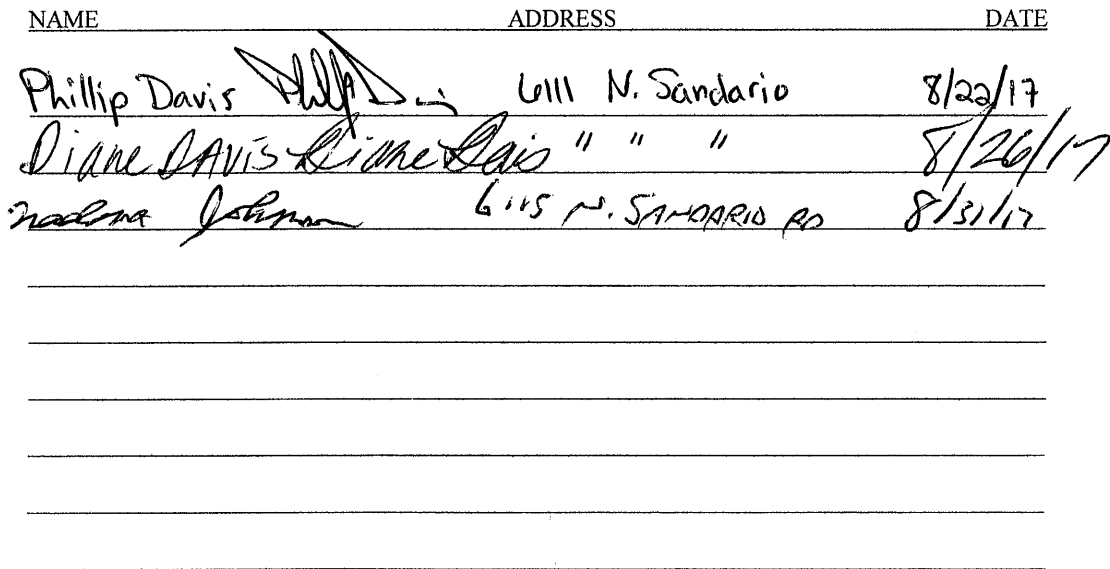 NAME ADDRESS DATE
Phillip Davis 6111 N. Sandario 8/22/17
Diane DAVIS Diane Davis " " " 8/26/17
Johnson 6115 N. SANDARIO RD 8/31/17